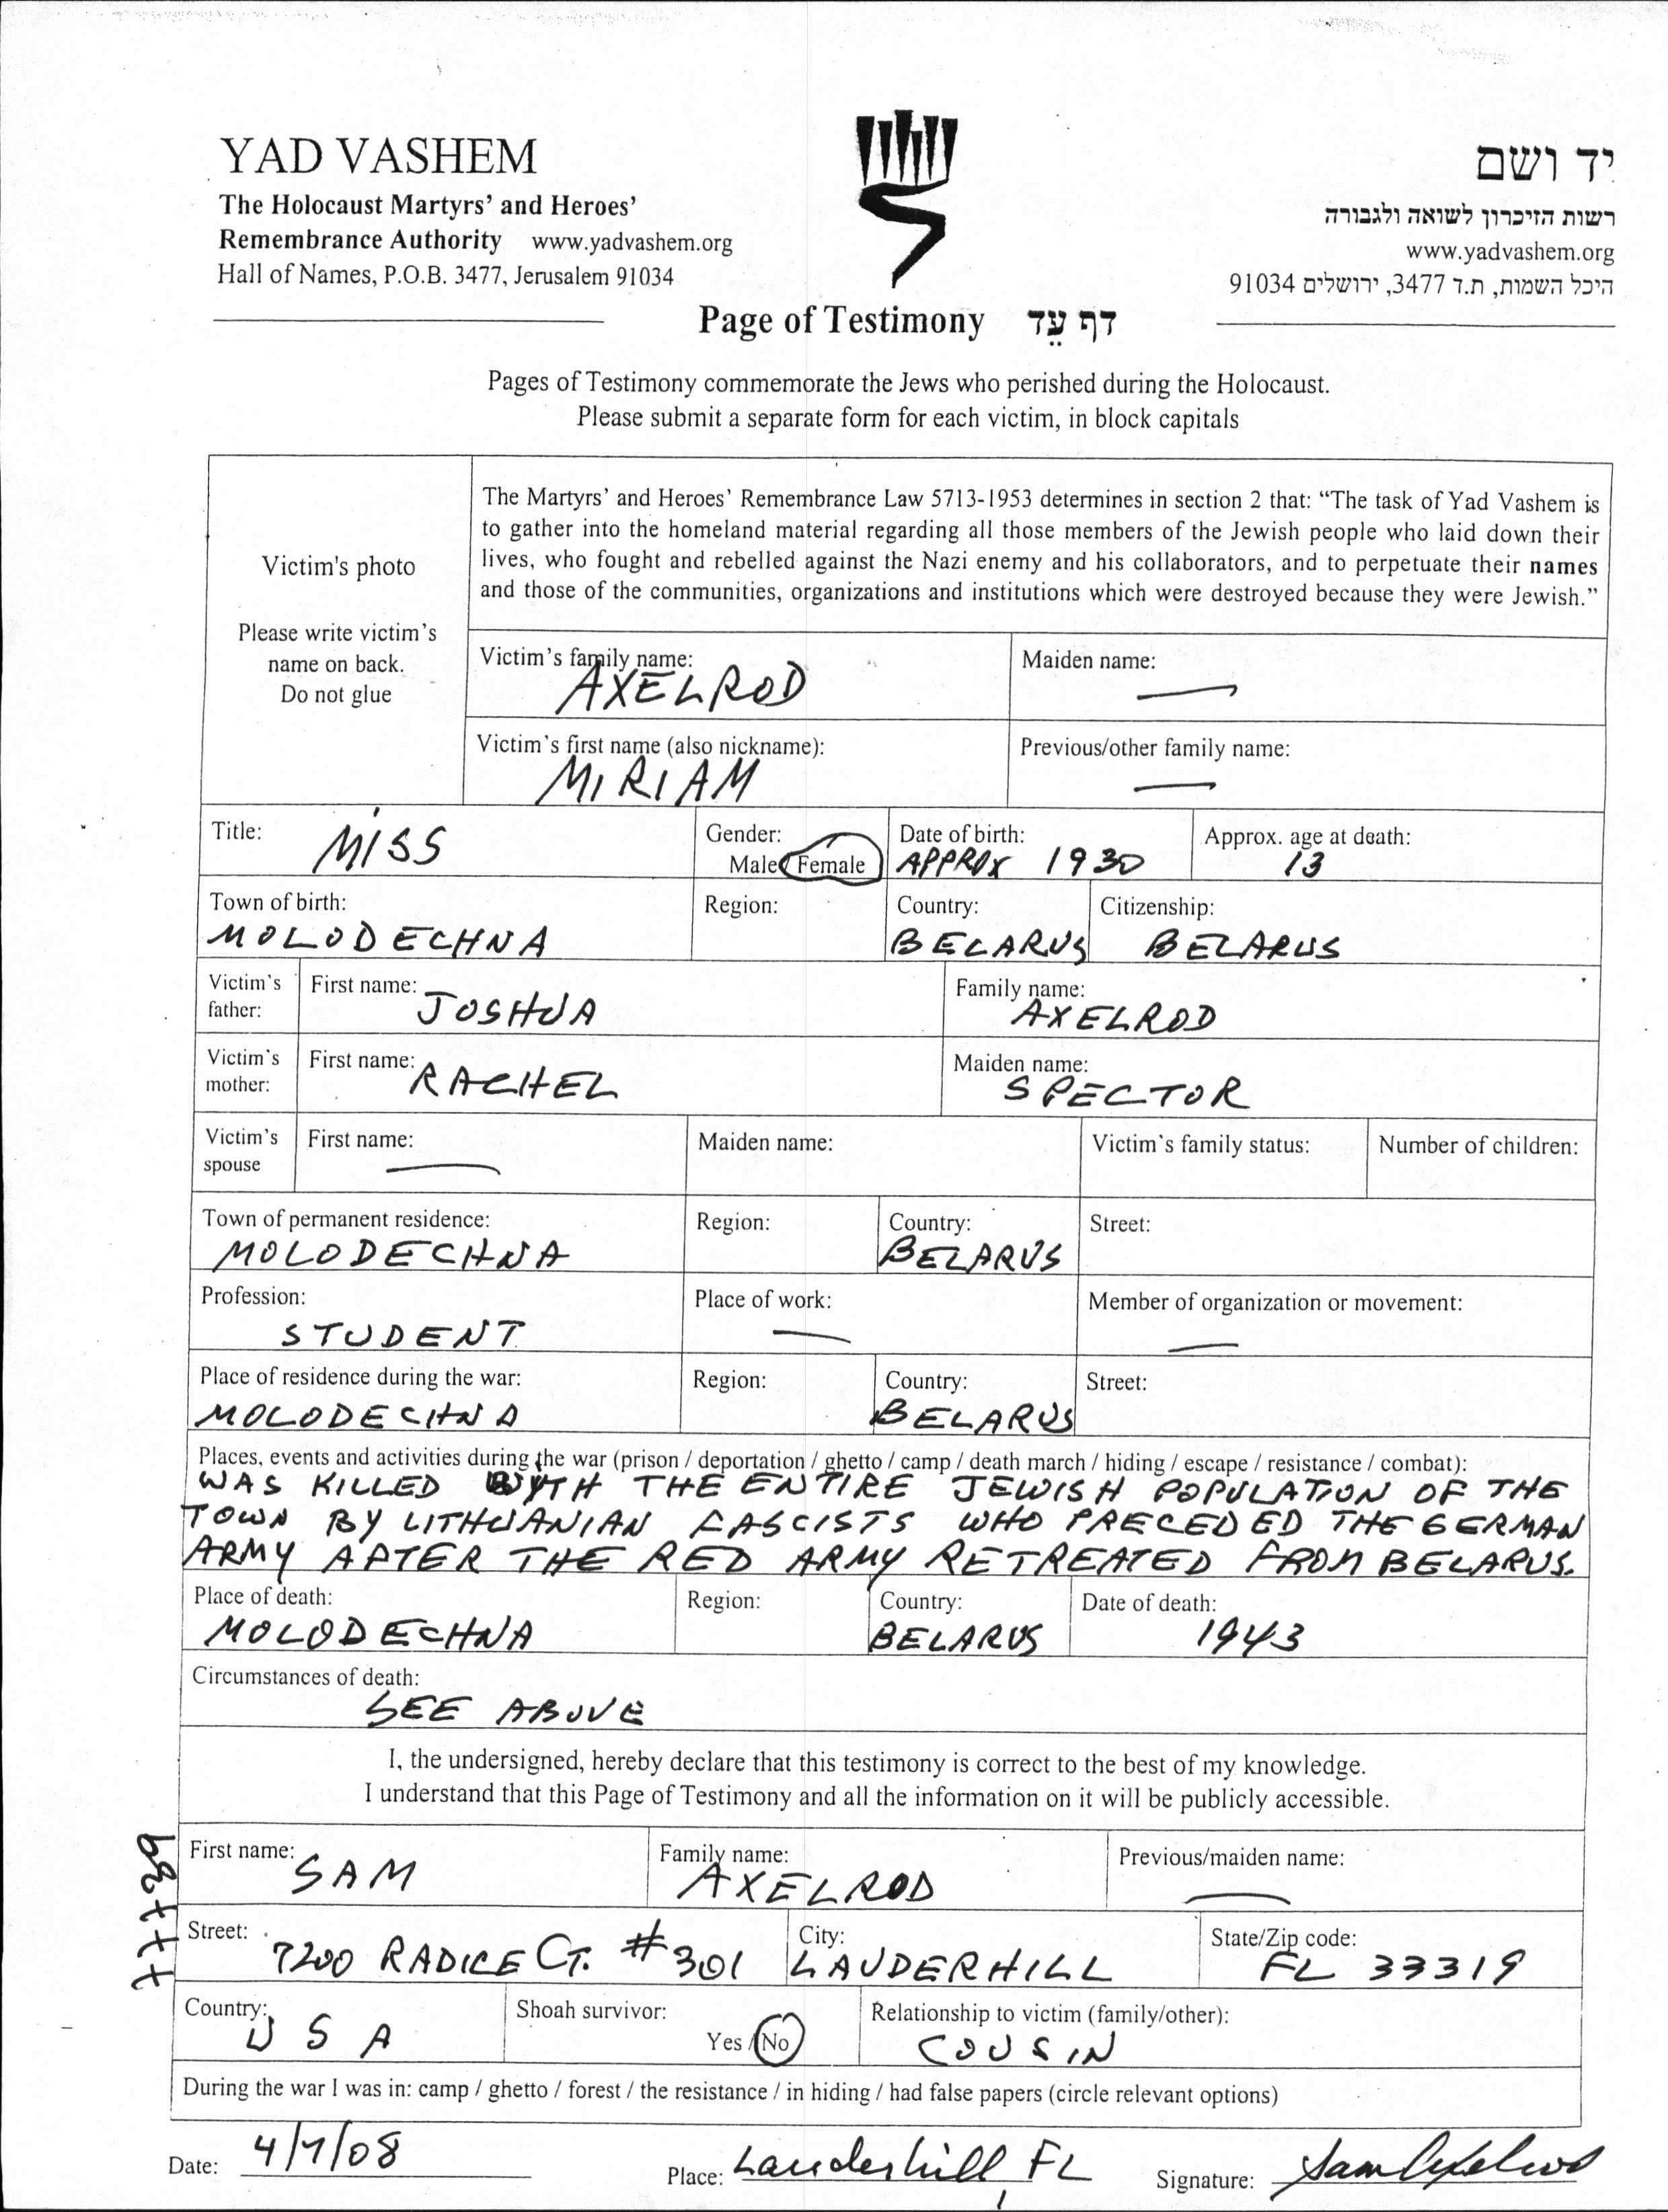 YAD VASHEM
The Holocaust Martyrs' and Heroes'
Remembrance Authority www.yadvashem.org
Hall of Names, P.O.B. 3477, Jerusalem 91034
יד ושם
רשות הזיכרון לשואה ולגבורה
www.yadvashem.org
היכל השמות, ת.ד 3477, ירושלים 91034
Page of Testimony דף עֵד
Pages of Testimony commemorate the Jews who perished during the Holocaust.
Please submit a separate form for each victim, in block capitals
Victim's photo
Please write victim's
name on back.
Do not glue
The Martyrs' and Heroes' Remembrance Law 5713-1953 determines in section 2 that: "The task of Yad Vashem is
to gather into the homeland material regarding all those members of the Jewish people who laid down their
lives, who fought and rebelled against the Nazi enemy and his collaborators, and to perpetuate their names
and those of the communities, organizations and institutions which were destroyed because they were Jewish."
Victim's family name: Maiden name:
AXELROD
Victim's first name (also nickname): Previous/other family name:
MIRIAM
Title: Gender: Date of birth: Approx. age at death:
MISS Male/Female APPROX 1930 13
Town of birth: Region: Country: Citizenship:
MOLODECHNA BELARUS BELARUS
Victim's father: First name: Family name:
JOSHUA AXELROD
Victim's mother: First name: Maiden name:
RACHEL SPECTOR
Victim's spouse First name: Maiden name: Victim's family status: Number of children:
Town of permanent residence: Region: Country: Street:
MOLODECHNA BELARUS
Profession: Place of work: Member of organization or movement:
STUDENT
Place of residence during the war: Region: Country: Street:
MOLODECHNA BELARUS
Places, events and activities during the war (prison / deportation / ghetto / camp / death march / hiding / escape / resistance / combat):
WAS KILLED WITH THE ENTIRE JEWISH POPULATION OF THE
TOWN BY LITHUANIAN FASCISTS WHO PRECEDED THE GERMAN
ARMY AFTER THE RED ARMY RETREATED FROM BELARUS.
Place of death: Region: Country: Date of death:
MOLODECHNA BELARUS 1943
Circumstances of death:
SEE ABOVE
I, the undersigned, hereby declare that this testimony is correct to the best of my knowledge.
I understand that this Page of Testimony and all the information on it will be publicly accessible.
First name: Family name: Previous/maiden name:
SAM AXELROD
Street: City: State/Zip code:
7200 RADICE CT. #301 LAUDERHILL FL 33319
Country: Shoah survivor: Relationship to victim (family/other):
USA Yes / No COUSIN
During the war I was in: camp / ghetto / forest / the resistance / in hiding / had false papers (circle relevant options)
Date: 4/7/08 Place: Lauderhill, FL Signature: Sam Axelrod